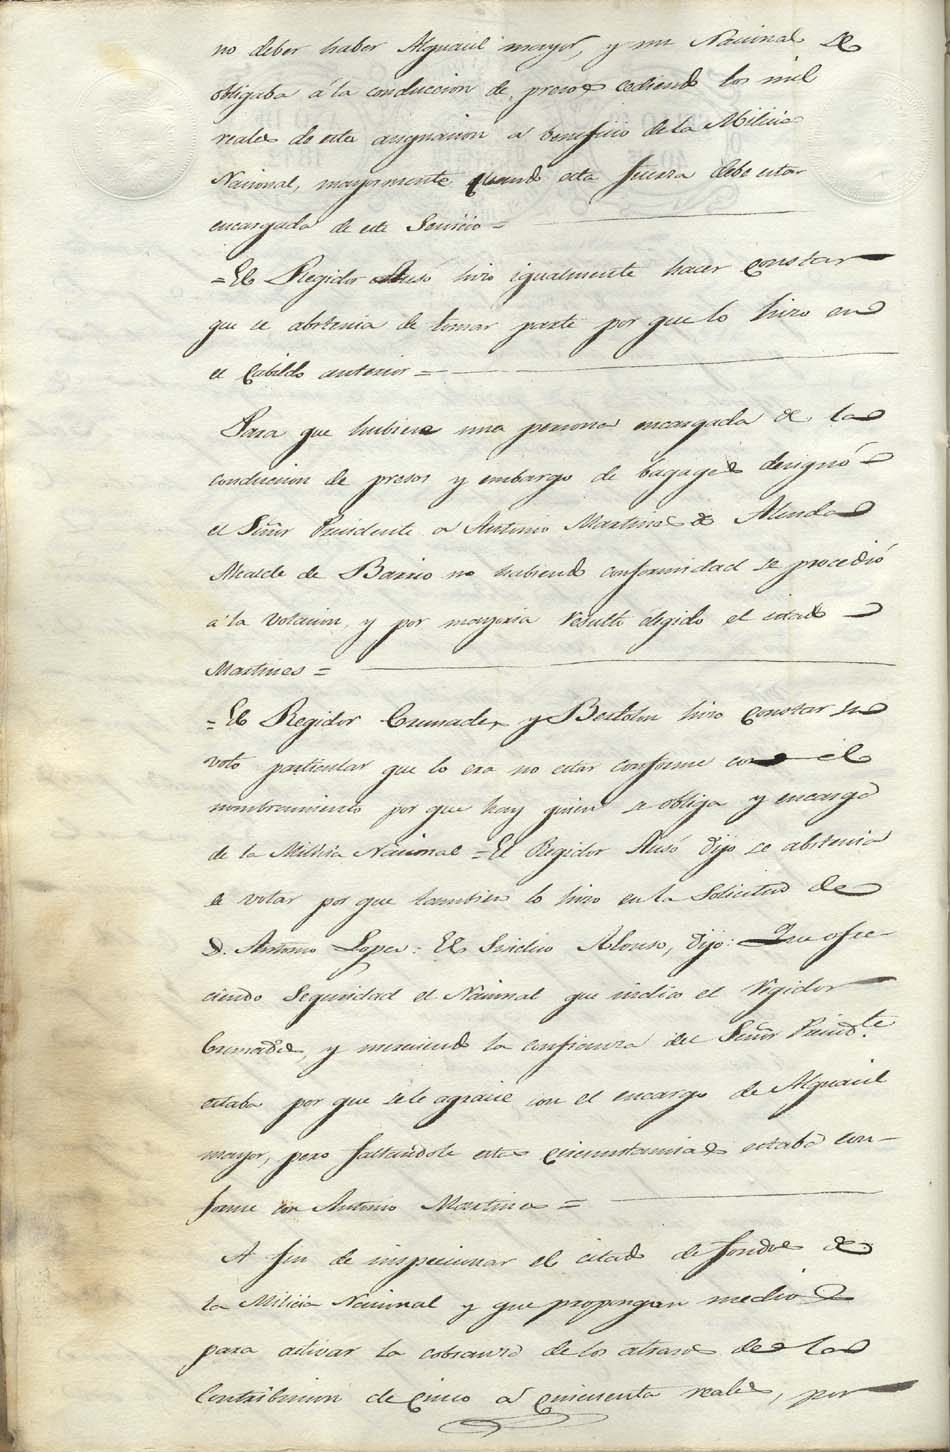 no deber haber Alguacil mayor, y un Nacional se
obligaba á la conduccion de presos cediendo los mil
reales de esta asignacion a beneficio de la Milicia
Nacional, mayormente quando esta fuerza debe estar
encargada de este Servicio =
= El Regidor Ausó hizo igualmente hacer constar
que se abstenia de tomar parte por que lo hizo en
el Cabildo anterior =
Para que hubiere una persona encargada de la
conduccion de presos y embargo de bagages designó
el Señor Presidente a Antonio Martines de Alenda
Alcalde de Barrio no habiendo conformidad se procedió
a la votacion, y por mayoria resultó elegido el citado
Martines =
= El Regidor Cremades y Bertolin hizo constar su
voto particular que lo era no estar conforme con el
nombramiento por que hay quien se obliga y encarga
de la Milicia Nacional = El Regidor Ausó dijo se abstenia
de votar por que tambien lo hizo en la Solicitud de
D. Antonio Lopez: El Sindico Alonso, dijo: Que ofre-
ciendo Seguridad el Nacional que indica el Regidor
Cremades, y mereciendo la confianza del Señor Presid.te
estaba por que se le agracie con el encargo de Alguacil
mayor, pero faltandole estas circunstancias estaba con-
forme con Antonio Martines =
A fin de inspecionar el estado de fondos de
la Milicia Nacional y que propongan medios
para activar la cobranza de los atrasos de la
Contribucion de cinco á cincuenta reales, por